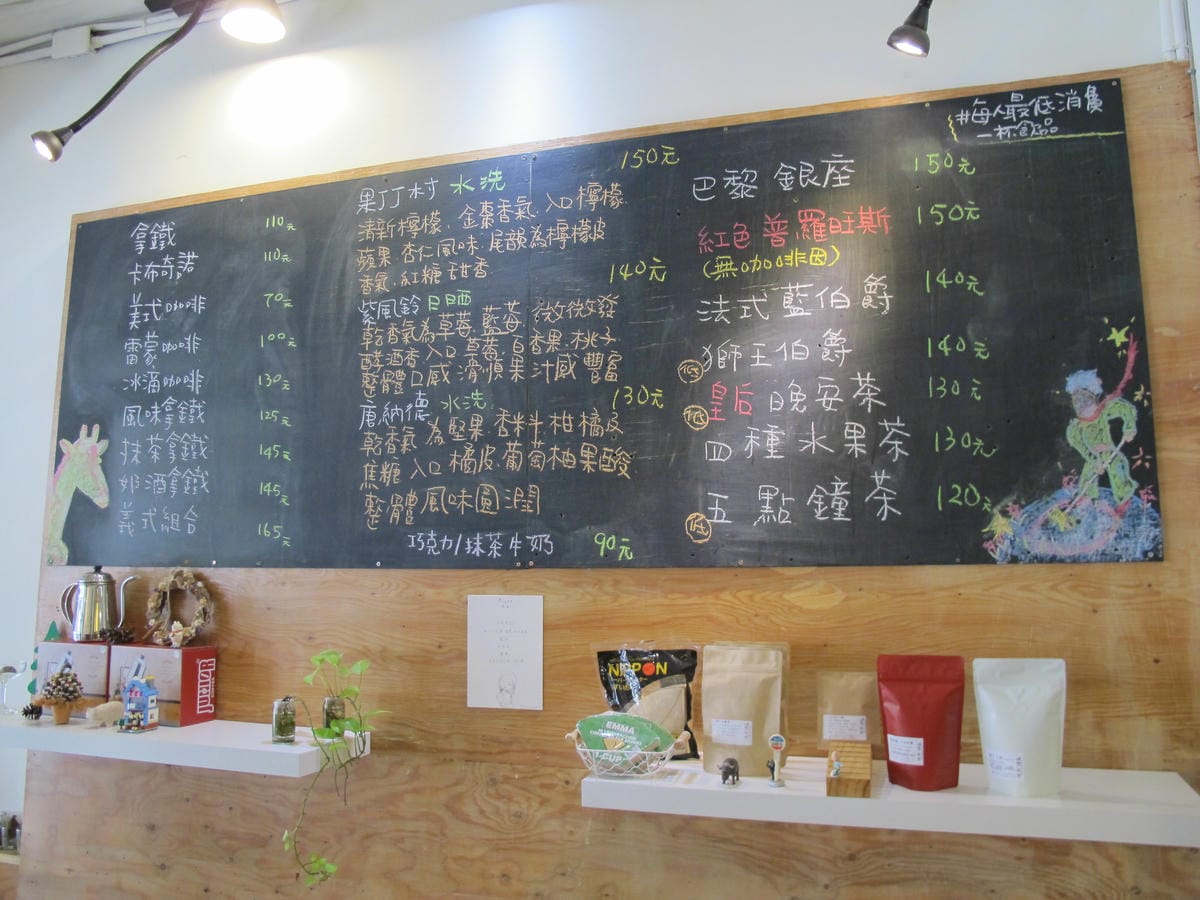 #每人最低消費
一杯飲品
拿鐵 110元
卡布奇諾 110元
美式咖啡 70元
雷蒙咖啡 100元
冰滴咖啡 130元
風味拿鐵 125元
抹茶拿鐵 145元
奶酒拿鐵 145元
義式組合 165元
果丁丁村 水洗 150元
清新檸檬、金棗香氣.入口檸檬.
蘋果.杏仁風味.尾韻為檸檬皮
香氣.紅糖甜香
紫風鈴 日晒 140元
乾香氣為草莓.藍莓.微微發
酵酒香 入口草莓.百香果.桃子
整體口感滑順果汁感豐富
唐納德 水洗 130元
乾香氣為堅果.香料.柑橘皮
焦糖 入口橘皮.葡萄柚果酸
整體風味圓潤
巧克力/抹茶牛奶 90元
巴黎銀座 150元
紅色普羅旺斯 150元
(無咖啡因)
法式藍伯爵 140元
獅王伯爵 140元
低 皇后晚安茶 130元
低 四種水果茶 130元
五點鐘茶 120元
低
NIPPON
EMMA
CUP